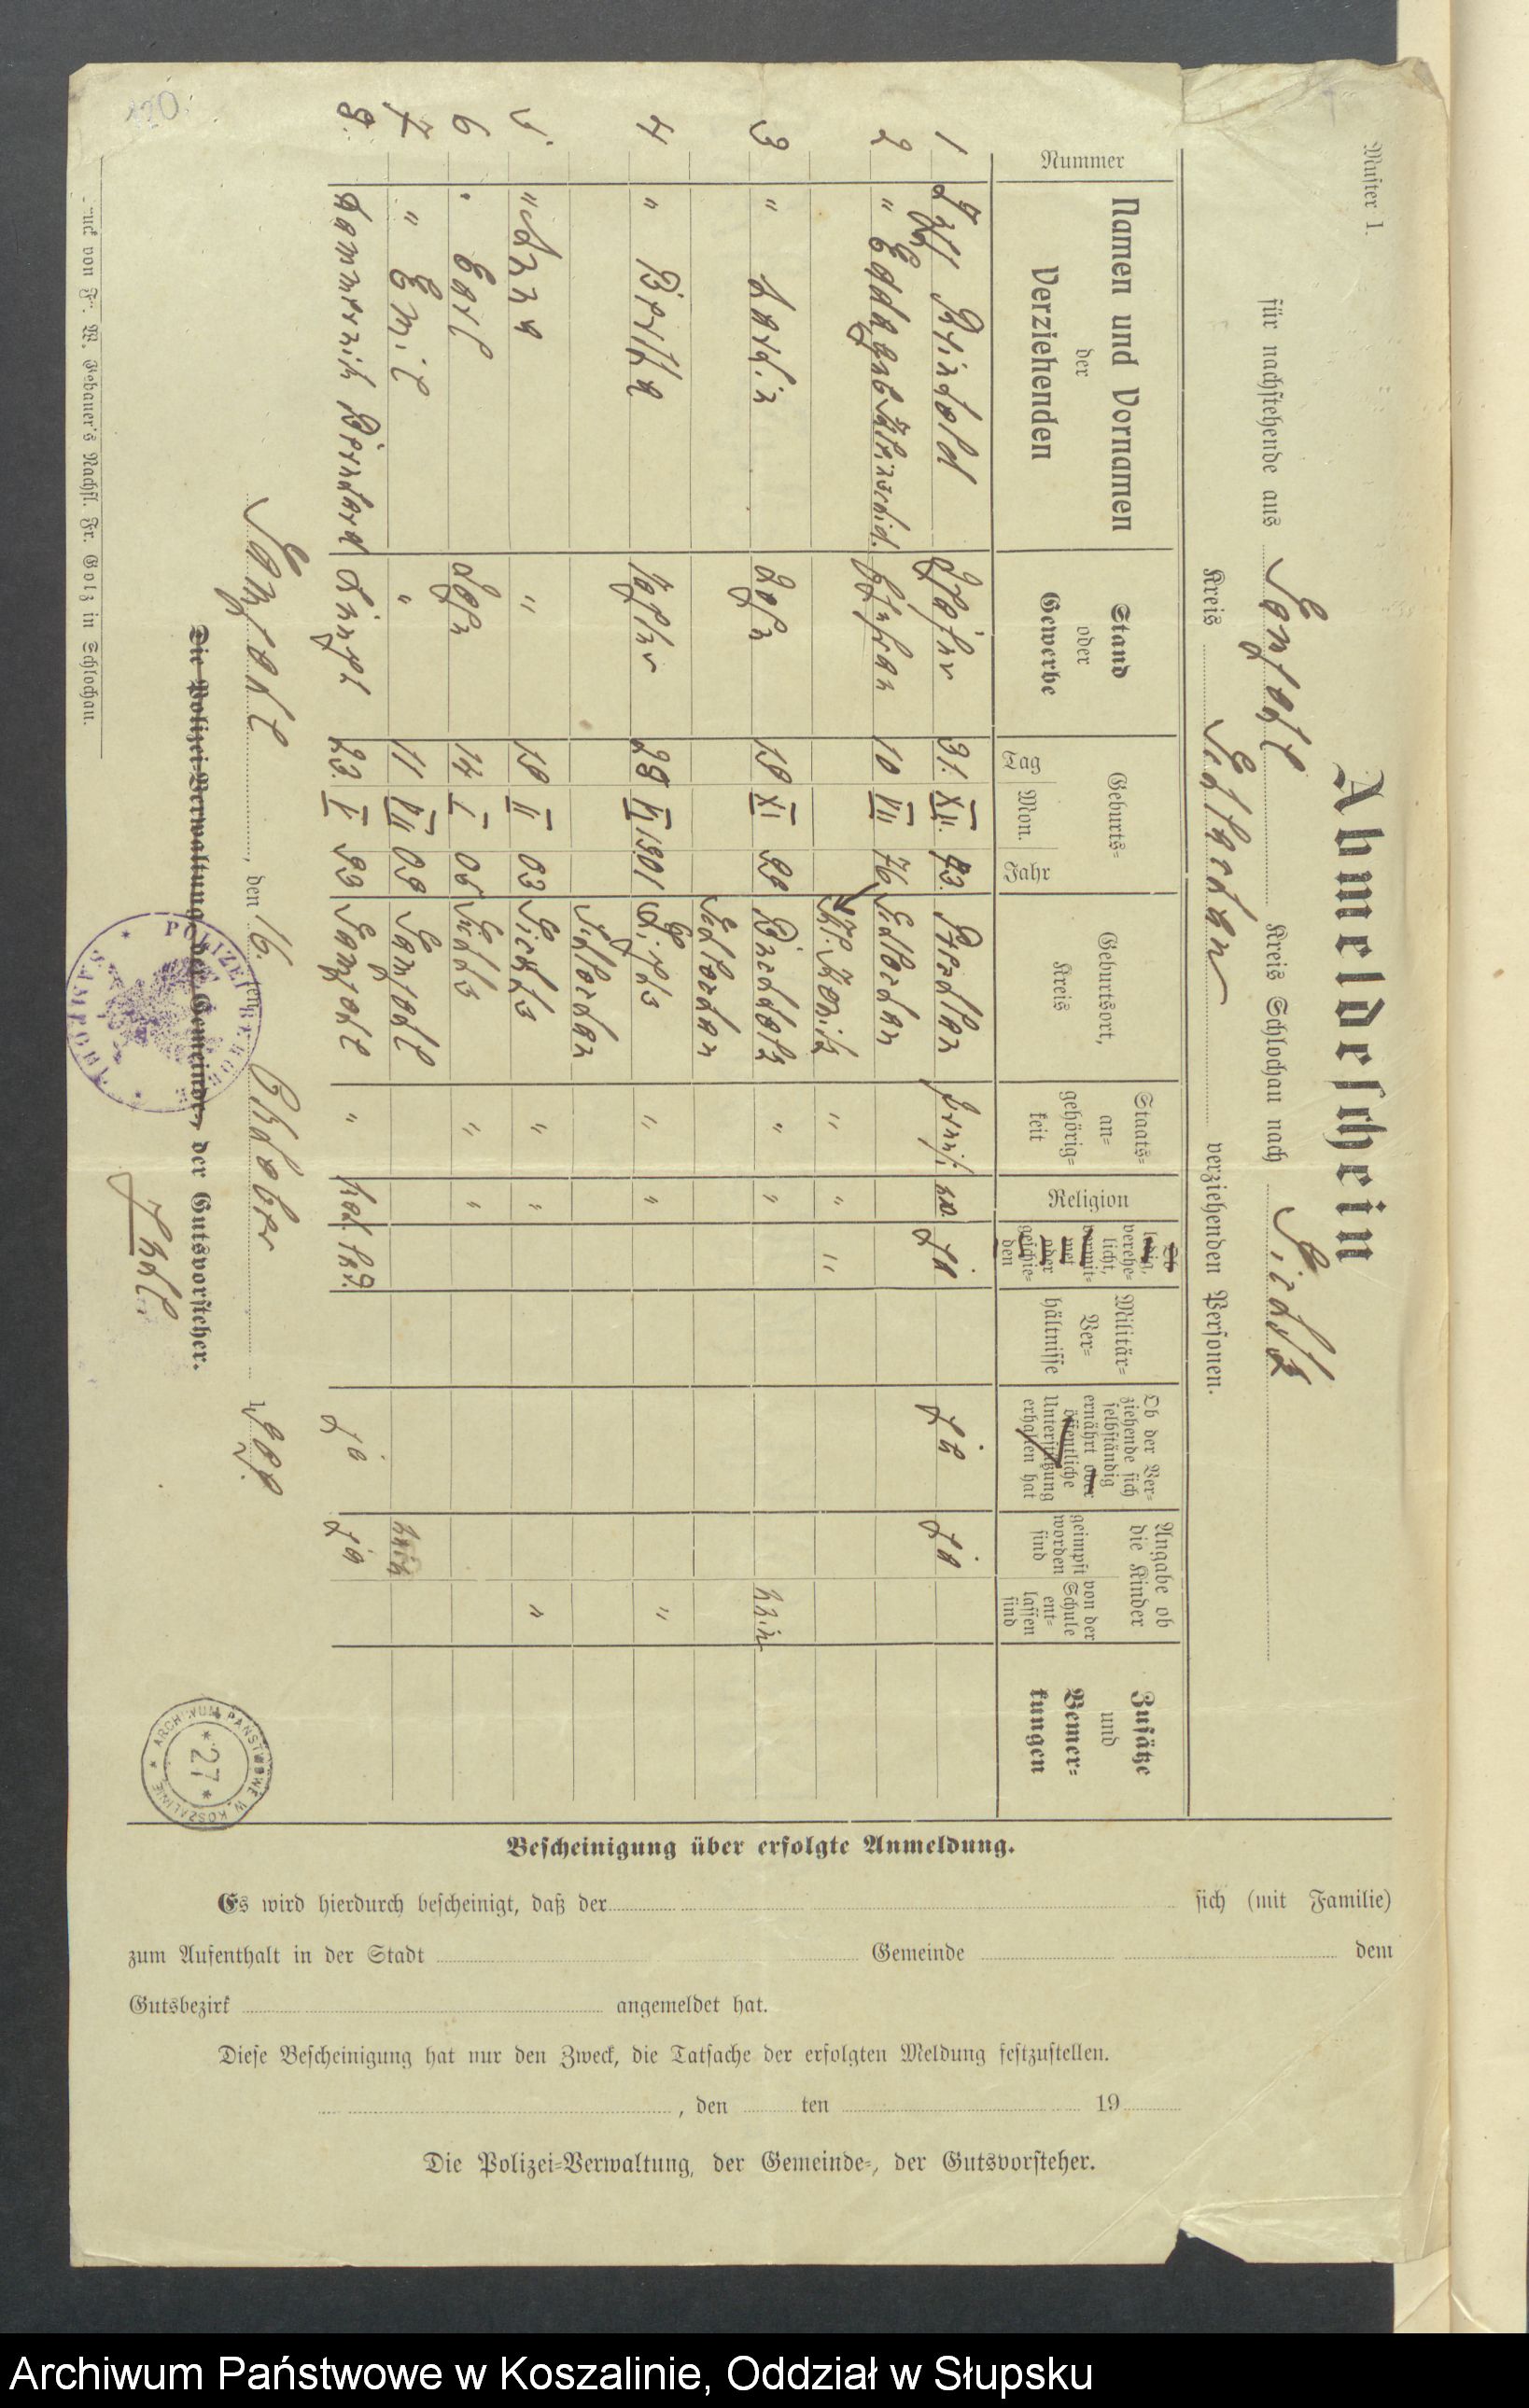 Muster 1.
Abmeldeschein
für nachstehende aus Sampohl Kreis Schlochau nach
Kreis Schlochau verziehenden Personen.
Nummer
Namen und Vornamen
der
Verziehenden
Stand
oder
Gewerbe
Geburts-
Tag Mon. Jahr
Geburtsort,
Kreis
Staats-
an-
gehörig-
keit
Religion
Ob
ledig,
verehe-
licht,
verwit-
wet
oder
geschie-
den
Militär-
Ver-
hältnisse
Ob der Ver-
ziehende sich
selbständig
ernährt oder
öffentliche
Unterstützung
erhalten hat
Angabe ob
die Kinder
geimpft
worden
sind
von der
Schule
ent-
lassen
sind
Zusätze
und
Bemer-
kungen
1 Reinhold 31. XII. 73. ev. Ja Ja Ja
2 " Ehefrau 10 VII 76 Schlochau
Kl. Konitz " " "
3 " Sohn 18 XI " " nein
Schlochau
4 " Bertha Tochter 28 VI 1901 " " "
Schlochau
5. " Anna " 18 II 03 " " "
6 " Carl Sohn 14 I 05 " "
7 " Emil " 11 VII 08 Sampohl nein
8. Bernhard 23. V 93 Sampohl " kat. Ja Ja
Sampohl, den 16. ten Oktober 190
Die Polizei-Verwaltung, der Gemeinde-, der Gutsvorsteher.
POLIZEIBEHÖRDE
SAMPOHL
120.
Druck von Fr. W. Gebauer's Nachfl. Fr. Golz in Schlochau.
ARCHIWUM PAŃSTWOWE W KOSZALINIE
* 27 *
Bescheinigung über erfolgte Anmeldung.
Es wird hierdurch bescheinigt, daß der sich (mit Familie)
zum Aufenthalt in der Stadt Gemeinde dem
Gutsbezirk angemeldet hat.
Diese Bescheinigung hat nur den Zweck, die Tatsache der erfolgten Meldung festzustellen.
, den ten 19
Die Polizei-Verwaltung, der Gemeinde-, der Gutsvorsteher.
Archiwum Państwowe w Koszalinie, Oddział w Słupsku